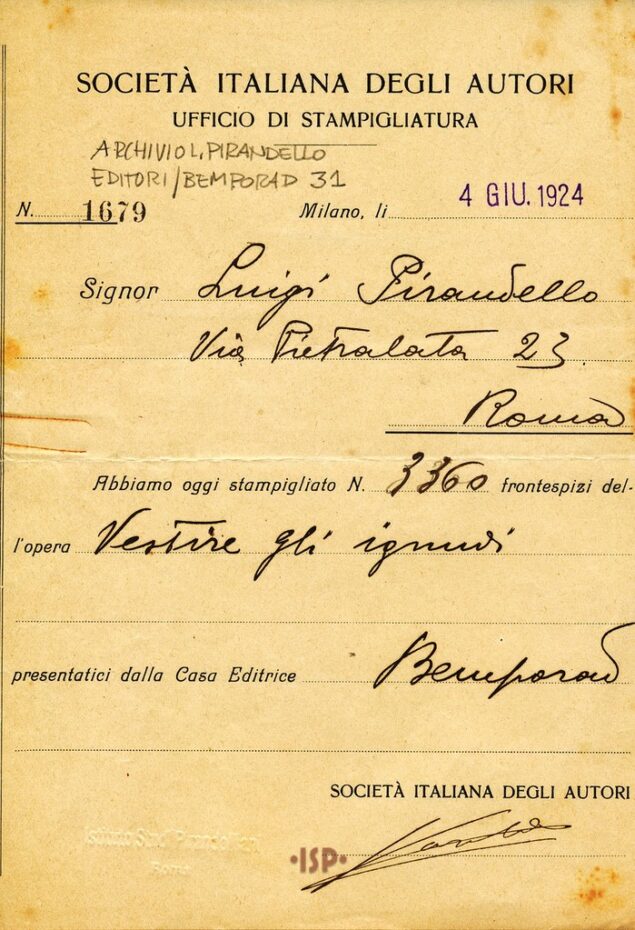 SOCIETÀ ITALIANA DEGLI AUTORI
UFFICIO DI STAMPIGLIATURA
ARCHIVIO L. PIRANDELLO
EDITORI/BEMPORAD 31
N. 1679 Milano, li 4 GIU. 1924
Signor Luigi Pirandello
Via Pietralata 23
Roma
Abbiamo oggi stampigliato N. 3360 frontespizi del-
l'opera Vestire gli ignudi
presentatici dalla Casa Editrice Bemporad
SOCIETÀ ITALIANA DEGLI AUTORI
·ISP·
Roma